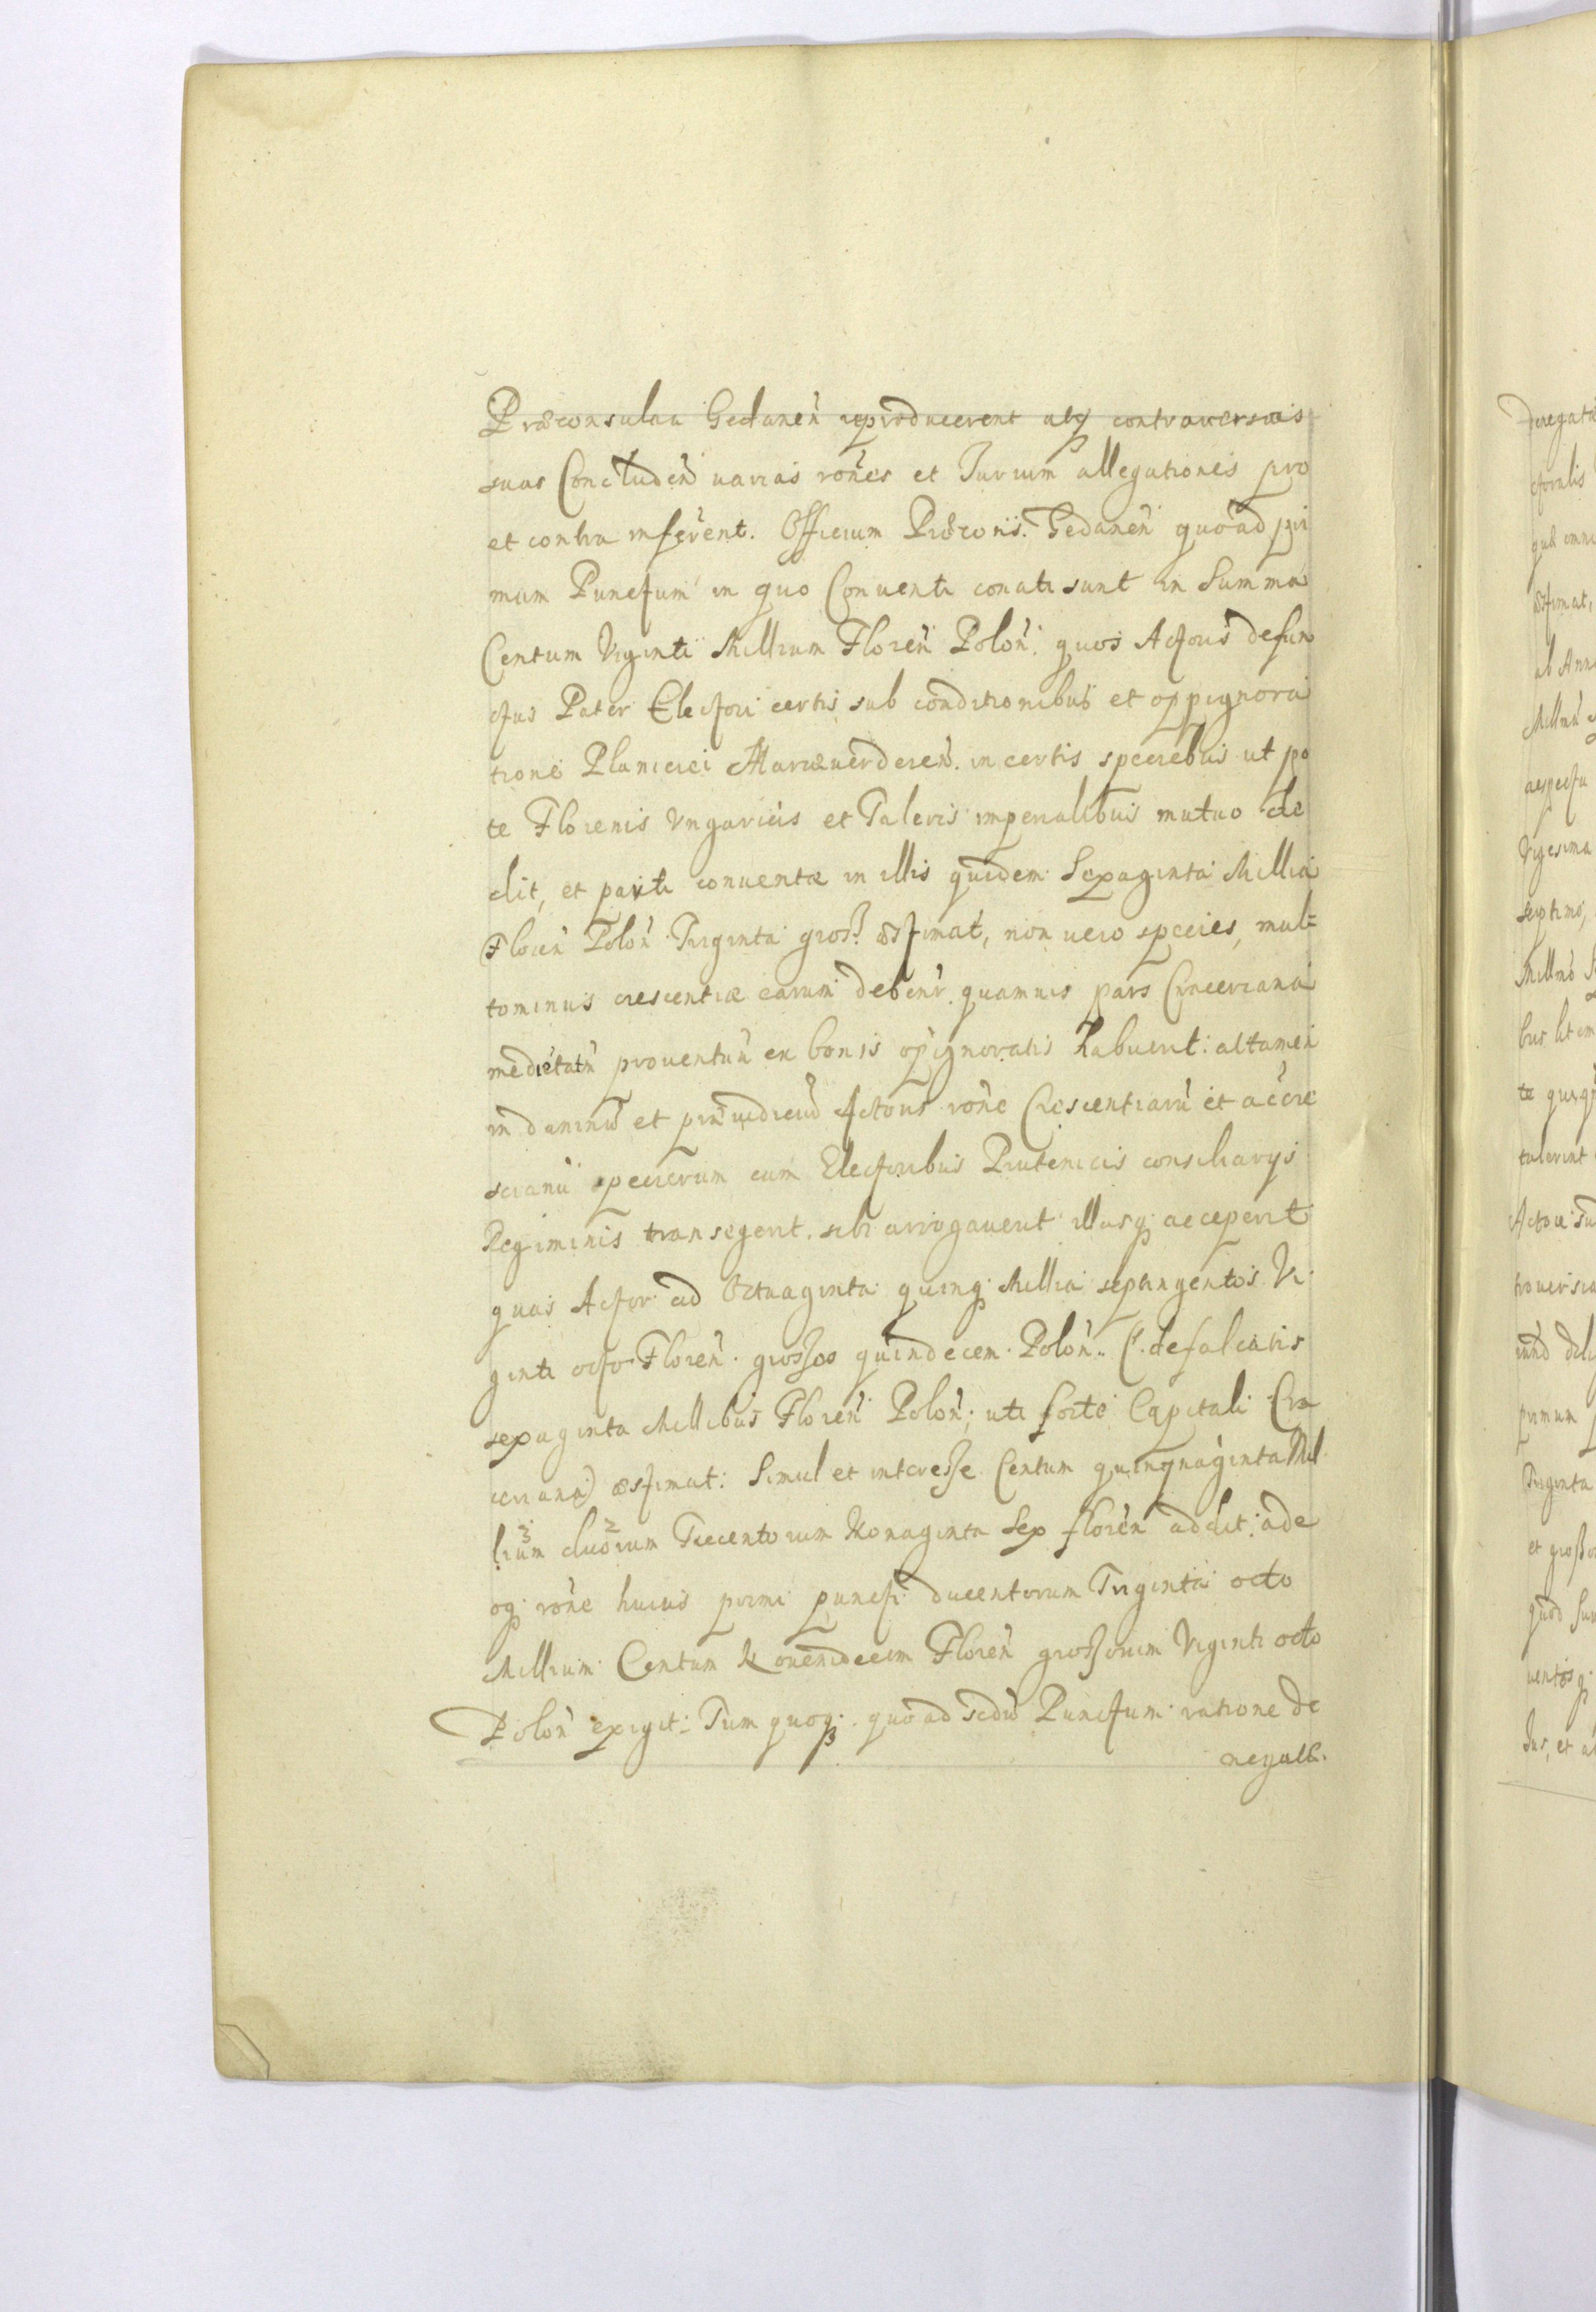 Præconsulari Gedanen̄ reproducerent atq; controversias
suas Concluden̄ varias rōnes et Jurium allegationes pro
et contra inferent. Officium Præconis. Gedanen̄ quoad pri
mum Punctum in quo Conventi conati sunt in Summa
Centum Viginti Millium Floren̄ Polon̄. quos Actoris defun
ctus Pater Electori certis sub conditionibus et oppignora
tione Planiciei Mariæverderen̄. in certis speciebus ut po
te Florenis Vngaricis et Taleris imperialibus mutuo de
dit, et parti conventæ in illis quidem Sexaginta Millia
Floren̄ Polon̄ Triginta gross. æstimat, non vero species, mul=
tominus crescentiæ earum debent̄r quamvis pars Craceriana
medietatn̄ proventuū ex bonis opignoratis habuerit: attamen
in damnū et præiudiciū Actoris rōne Crescentiarū et accre
scianū specierum cum Electoribus Prutenicis consiliarijs
Regiminis transegerit. sibi arrogaverit illasq; acceperit
quas Actor ad Octuaginta quinq; Millia septingentos Vi
ginti octo Floren̄. grossos quindecem. Polon̄. (defalcatis
sexaginta Millibus Floren̄ Polon̄; uti sorte Capitali Cra
ceriana) æstimat: Simul et interesse Centum quinquaginta Mil
lium duorum Trecentorum Nonaginta Sex floren̄ addit: ade
oq; rōne huius primi puncti ducentorum Triginta octo
Millium Centum Novendecim Floren̄ grossorum Viginti octo
Polon̄ exigit: Tum quoq; quoad 2dū Punctum ratione de
negatæ.